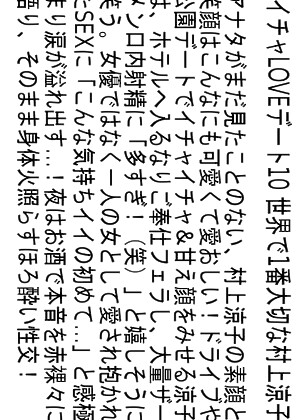 イチャLOVEデート10 世界で1番大切な村上涼子
アナタがまだ見たことのない、村上涼子の素顔と
笑顔はこんなにも可愛くて愛おしい!ドライブや
公園デートでイチャイチャ&甘え顔をみせる涼子
は、ホテルへ入るなりご奉仕フェラし、大量ザー
メン口内射精に「多すぎ!(笑)」と嬉しそうに
笑う。女優ではなく一人の女として愛され抱かれ
たSEXに「こんな気持ちイイの初めて…」と感極
まり涙が溢れ出す…!夜はお酒で本音を赤裸々に
語り、そのまま身体火照らすほろ酔い性交!